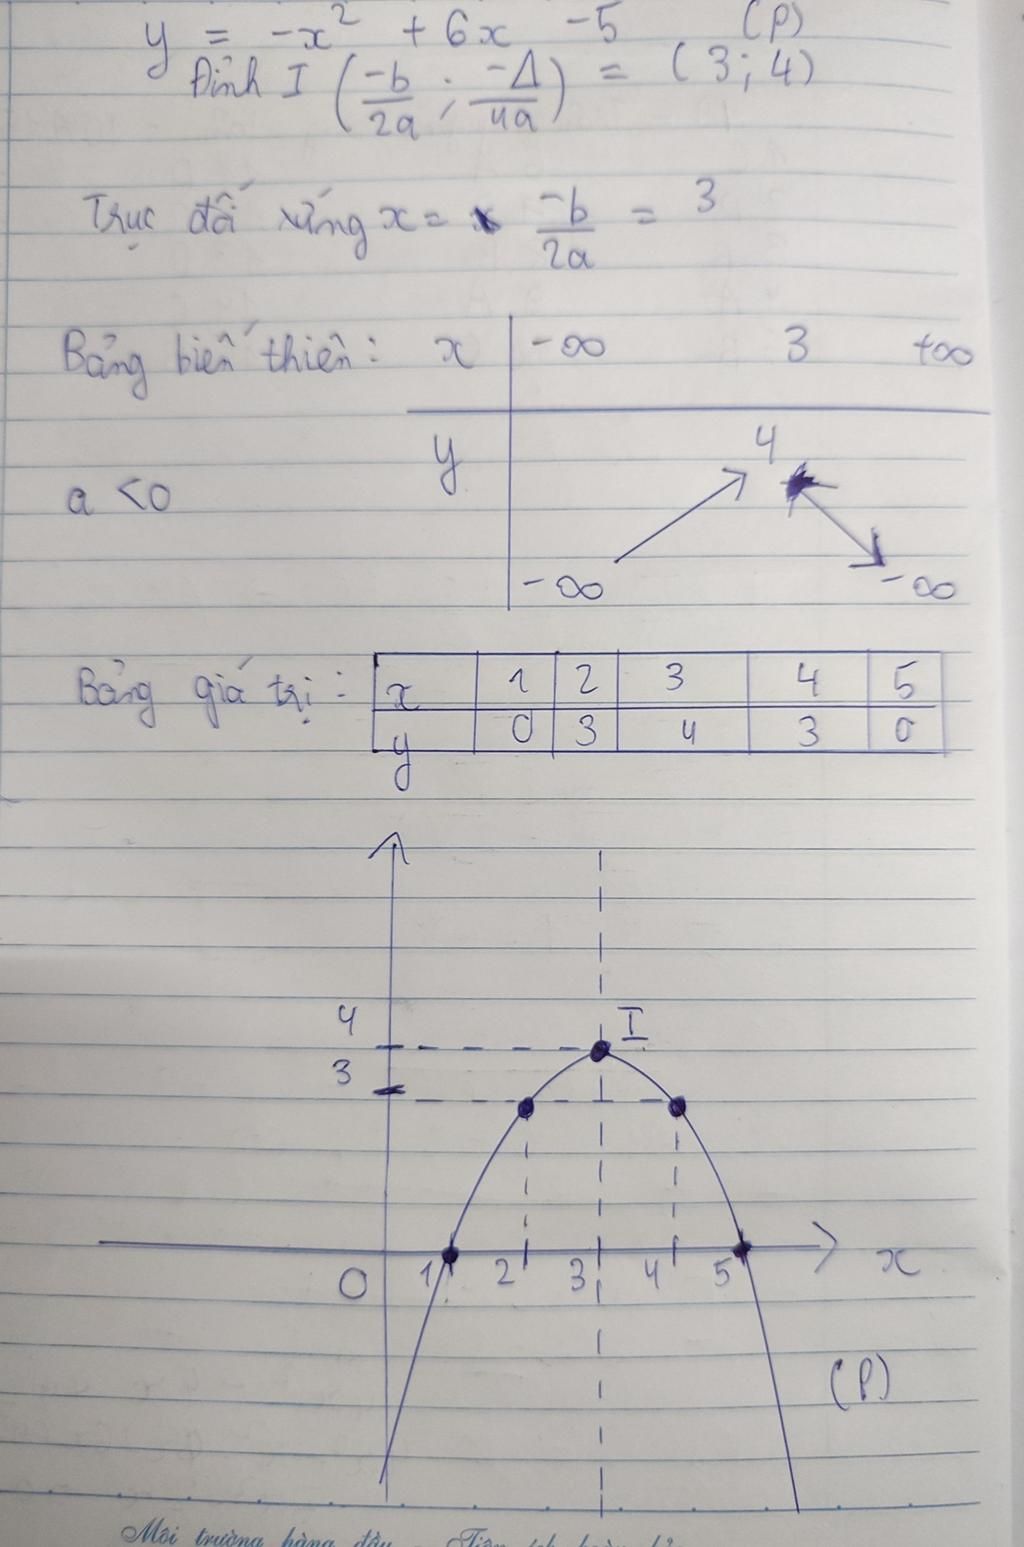 y = -x² + 6x -5 (P)
Đỉnh I (-b/2a ; -Δ/4a) = (3; 4)
Trục đối xứng x = -b/2a = 3
Bảng biến thiên: x -∞ 3 +∞
y 4
a <0
-∞ -∞
Bảng giá trị: x 1 2 3 4 5
y 0 3 4 3 0
4 I
3
0 1 2 3 4 5 x
(P)
Môi trường hàng đầu